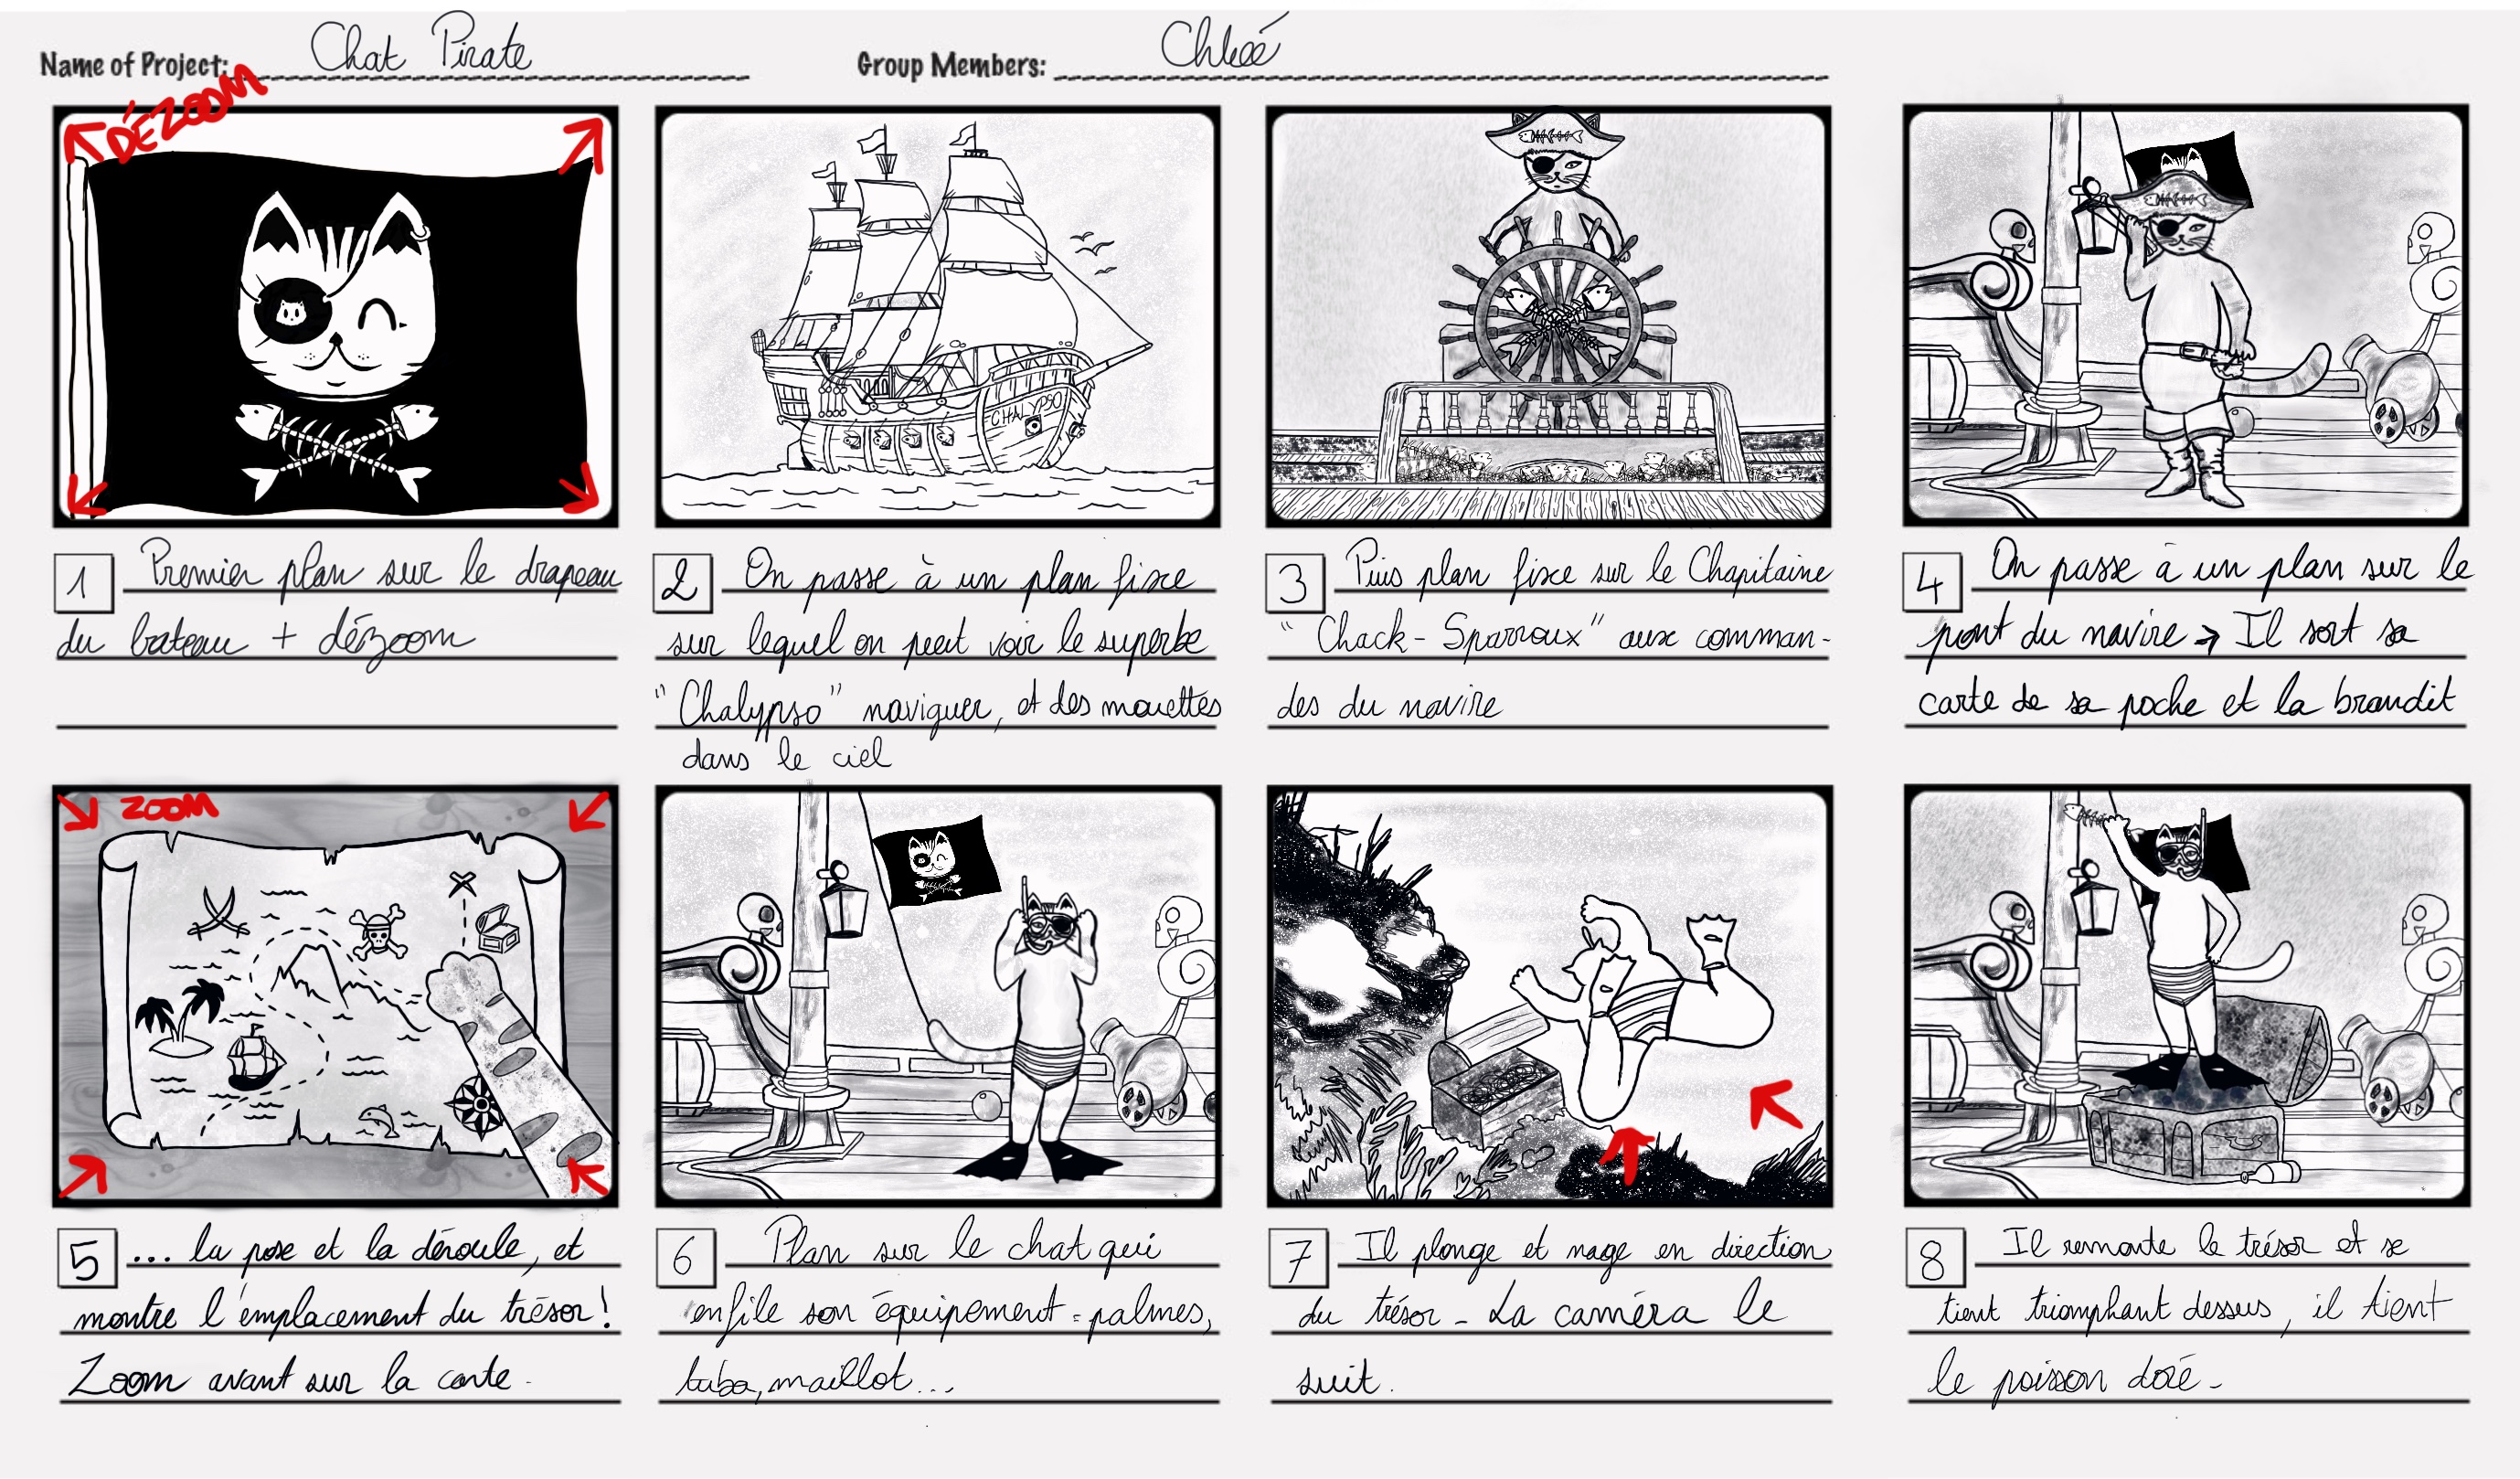 Name of Project: Chat Pirate
Group Members: Chloé
DÉZOOM
CHALYPSO
1 Premier plan sur le drapeau
du bateau + dézoom
2 On passe à un plan fixe
sur lequel on peut voir le superbe
"Chalypso" naviguer, et des mouettes
dans le ciel
3 Puis plan fixe sur le Chapitaine
"Chack-Sparroux" aux comman-
des du navire
4 On passe à un plan sur le
pont du navire → Il sort sa
carte de sa poche et la brandit
ZOOM
5 ... la pose et la déroule, et
montre l'emplacement du trésor!
Zoom avant sur la carte.
6 Plan sur le chat qui
enfile son équipement = palmes,
tuba, maillot...
7 Il plonge et nage en direction
du trésor - La caméra le
suit.
8 Il remonte le trésor et se
tient triomphant dessus, il tient
le poisson doré -